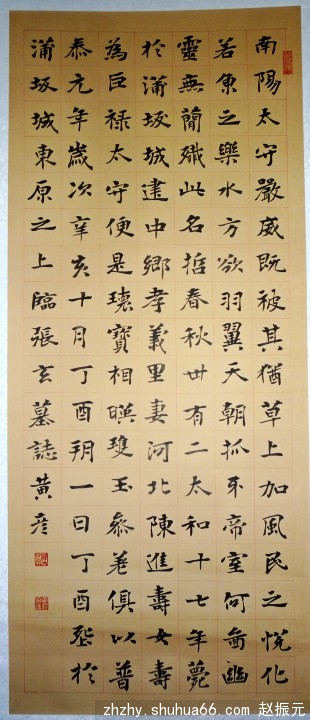 南陽太守嚴威既被其猶草上加風民之悅化
若魚之樂水方欲羽翼天朝抓牙帝室何啚幽
靈無蕳殲此名哲春秋卅有二太和十七年薨
於蒲坂城建中鄉孝義里妻河北陳進壽女壽
為巨祿太守便是瓌寶相暎瓊玉參差俱以普
泰元年歲次辛亥十月丁酉朔一日丁酉塟於
蒲坂城東原之上臨張玄墓誌黃彦
zhzhy.shuhua66.com 赵振元